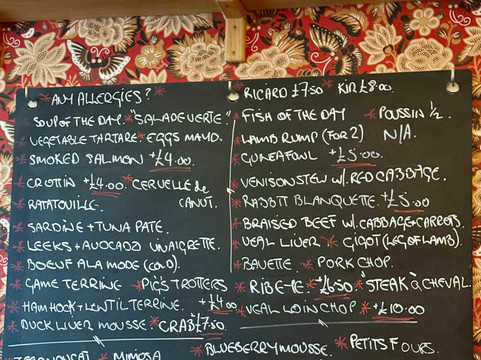 * ANY ALLERGIES? *
SOUP OF THE DAY. * "SALADE VERTE" *
* VEGETABLE TARTARE. * EGGS MAYO.
* SMOKED SALMON +£4.00.
* CROTTIN +£4.00 * CERVELLE de CANUT.
* RATATOUILLE.
* SARDINE + TUNA PATE.
* LEEKS + AVOCADO VINAIGRETTE.
* BOEUF A LA MODE (COLD).
* GAME TERRINE * PIG'S TROTTERS
* HAM HOCK + LENTIL TERRINE. +£4.00
* DUCK LIVER MOUSSE. * CRAB £7.50
MIMOSA
* RICARD £7.50 * KIR £8.00.
* FISH OF THE DAY * POUSSIN 1/2.
* LAMB RUMP (FOR 2) N/A.
* GUINEAFOWL +£5.00.
* VENISON STEW W/. RED CABBAGE.
* RABBIT BLANQUETTE. +£5.00
* BRAISED BEEF W. CABBAGE + CARROTS.
* VEAL LIVER * GIGOT (LEG OF LAMB).
* BAVETTE * PORK CHOP.
* RIB-EYE * +£6.50 * "STEAK à CHEVAL.
* VEAL LOIN CHOP * +£10.00
* BLUEBERRY MOUSSE. * PETITS FOURS.